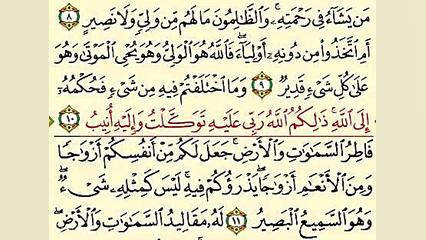 مَن يَشَآءُ فِى رَحْمَتِهِۦۚ وَٱلظَّٰلِمُونَ مَا لَهُم مِّن وَلِىٍّ وَلَا نَصِيرٍ ٨
أَمِ ٱتَّخَذُوا۟ مِن دُونِهِۦٓ أَوْلِيَآءَۖ فَٱللَّهُ هُوَ ٱلْوَلِىُّ وَهُوَ يُحْىِ ٱلْمَوْتَىٰ وَهُوَ
عَلَىٰ كُلِّ شَىْءٍ قَدِيرٌ ٩ وَمَا ٱخْتَلَفْتُمْ فِيهِ مِن شَىْءٍ فَحُكْمُهُۥٓ
إِلَى ٱللَّهِۚ ذَٰلِكُمُ ٱللَّهُ رَبِّى عَلَيْهِ تَوَكَّلْتُ وَإِلَيْهِ أُنِيبُ ١٠
فَاطِرُ ٱلسَّمَٰوَٰتِ وَٱلْأَرْضِۚ جَعَلَ لَكُم مِّنْ أَنفُسِكُمْ أَزْوَٰجًا
وَمِنَ ٱلْأَنْعَٰمِ أَزْوَٰجًاۖ يَذْرَؤُكُمْ فِيهِۚ لَيْسَ كَمِثْلِهِۦ شَىْءٌۖ
وَهُوَ ٱلسَّمِيعُ ٱلْبَصِيرُ ١١ لَهُۥ مَقَالِيدُ ٱلسَّمَٰوَٰتِ وَٱلْأَرْضِۖ